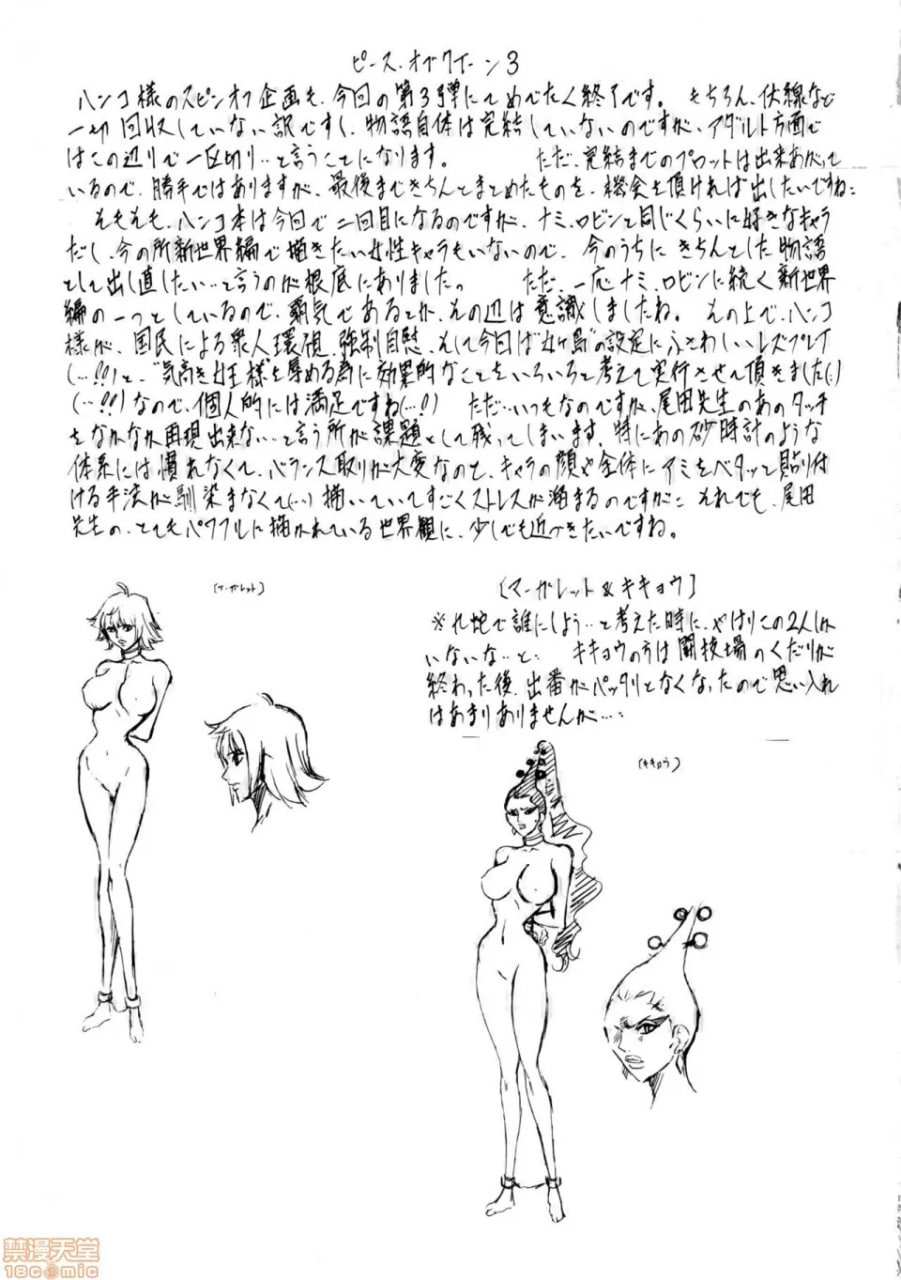 ピース・オブ・クイーン3
ハンコ様のスピンオフ企画も、今回の第3弾にてめでたく終了です。 もちろん、伏線など
一切回収していない訳ですし、物語自体は完結していないのですが、アダルト方面で
はこの辺りで一区切り…と言うことになります。 ただ、完結までのプロットは出来あがって
いるので、勝手ではありますが、最後まできちんとまとめたものを、機会を頂ければ出したいですね…
そもそも、ハンコ本は今回で二回目になるのですが、ナミ、ロビンと同じくらいに好きなキャラ
だし、今の所新世界編で描きたい女性キャラもいないので、今のうちにきちんとした物語
として出し直したい…と言うのが根底にありましたっ ただ、一応ナミ、ロビンに続く新世界
編の一つとしているので、覇気であるとか、その辺は意識しましたね。 その上で、ハンコ
様が、国民による衆人環視、強制自慰、そして今日は“女ヶ島”の設定にふさわしいレズプレイ
(…!!)と、“気高き女王様”を辱める為に効果的なことをいろいろと考えて実行させて頂きました(…!)
(…!!)なので、個人的には満足ですね(…!) ただ…いつもなのですが、尾田先生のあのタッチ
をなかなか再現出来ない…と言う所が課題として残ってしまいます。特にあの砂時計のような
体系には慣れなくて、バランス取りが大変なのと、キャラの顔や全体にアミをベタッと貼り付
ける手法が馴染まなくて(…)描いていてすごくストレスが溜まるのですが… それでも、尾田
先生の、とてもパワフルに描かれている世界観に、少しでも近づきたいですね。
(マーガレット)
[マーガレット&キキョウ]
※九蛇で誰にしよう…と考えた時に、やはりこの2人しか
いないな…と… キキョウの方は闘技場のくだりが
終わった後、出番がパッタリとなくなったので思い入れ
はあまりありませんが…
(キキョウ)
禁漫天堂
18comic